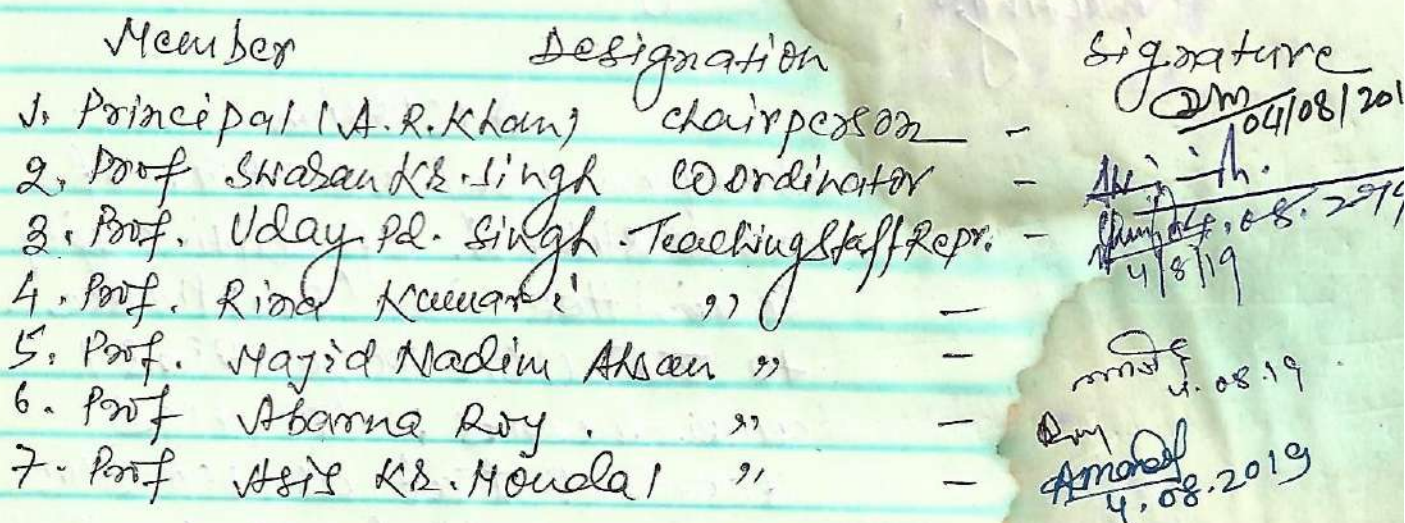 Member Designation Signature
1. Principal (A.R.Khan) Chairperson - 04/08/201
2. Prof Swaran Kr. Singh Coordinator -
3. Prof. Uday Pd. Singh. Teaching Staff Repr. - 04.08.2019
4. Prof. Rina Kumari " - 4/8/19
5. Prof. Majid Nadim Ahsan " - 4.08.19
6. Prof Abarna Roy. " - Roy
7. Prof Asis Kr. Mondal " - AMondal
4.08.2019